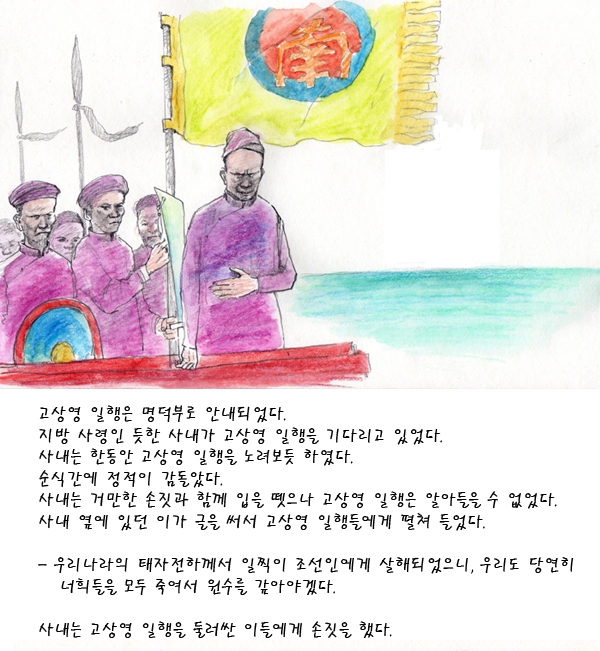 南
고상영 일행은 명덕부로 안내되었다.
지방 사령인 듯한 사내가 고상영 일행을 기다리고 있었다.
사내는 한동안 고상영 일행을 노려보듯 하였다.
순식간에 정적이 감돌았다.
사내는 거만한 손짓과 함께 입을 뗏으나 고상영 일행은 알아들을 수 없었다.
사내 옆에 있던 이가 글을 써서 고상영 일행들에게 펼쳐 들었다.
- 우리나라의 태자전하께서 일찍이 조선인에게 살해되었으니, 우리도 당연히
너희들을 모두 죽여서 원수를 갚아야겠다.
사내는 고상영 일행을 둘러싼 이들에게 손짓을 했다.